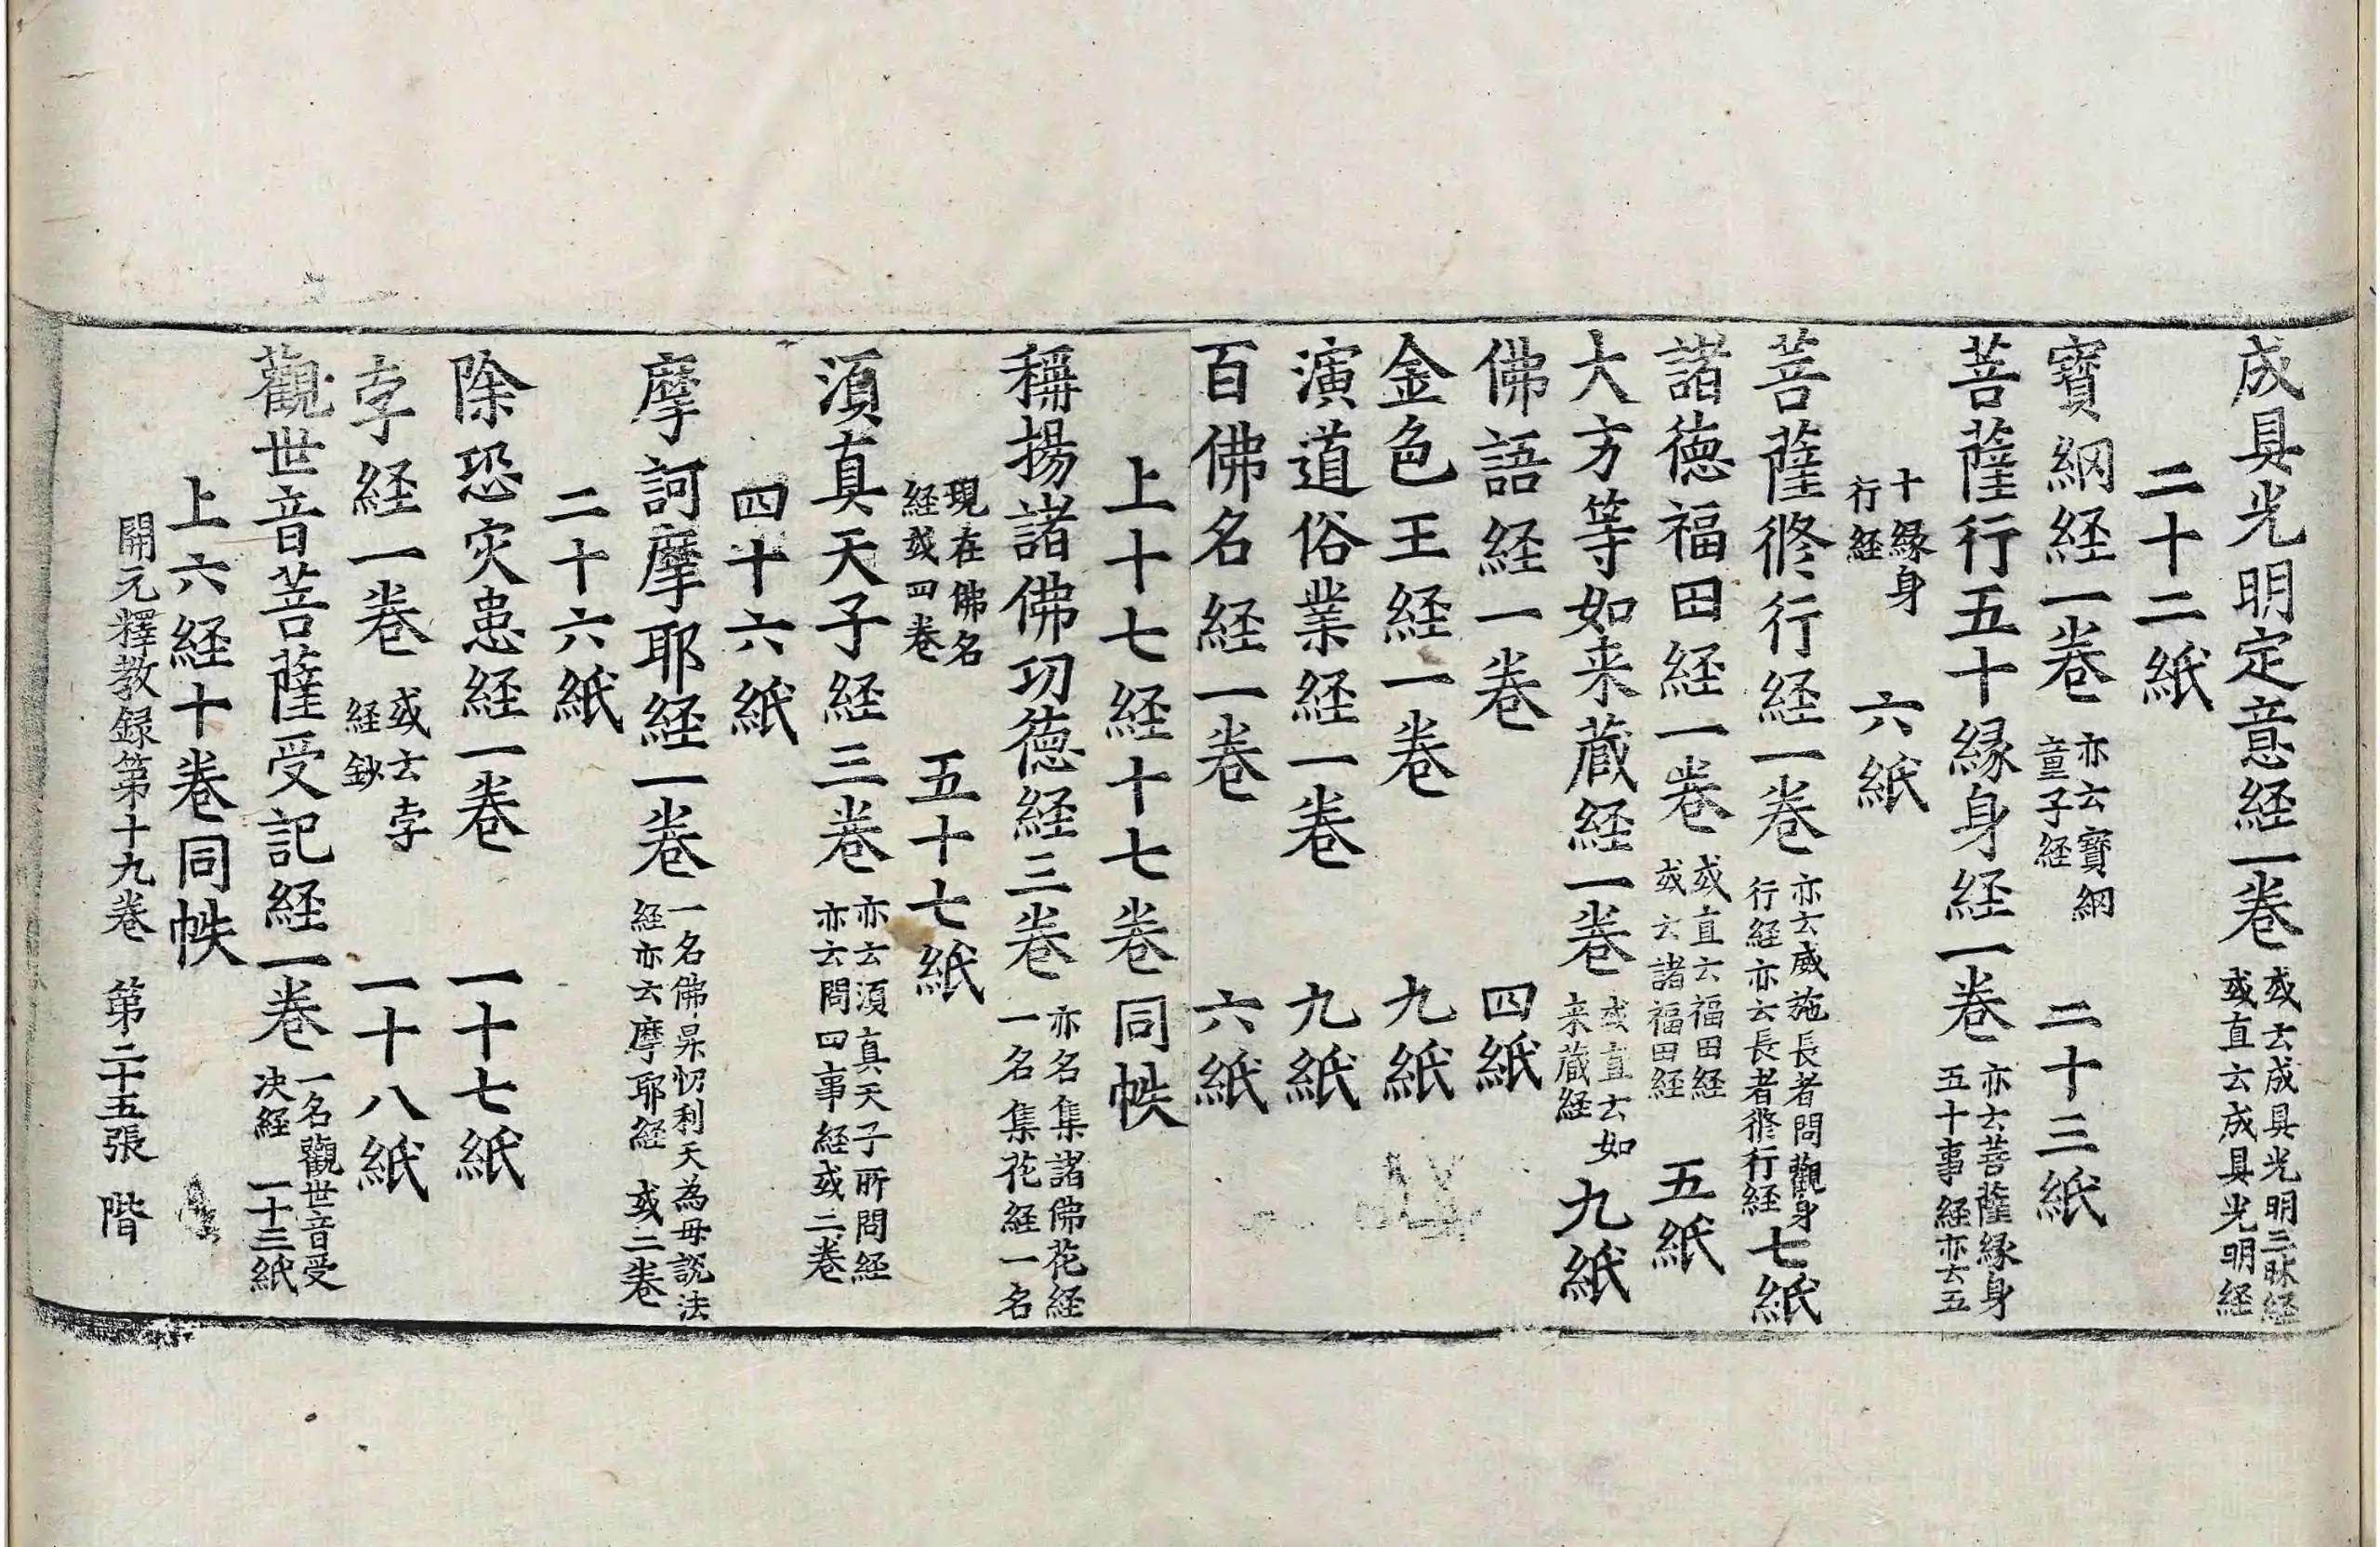 成具光明定意経一巻 或云成具光明三昧経 或直云成具光明経
二十二紙
寳網経一巻 亦云寳網 童子経 二十三紙
菩薩行五十縁身経一巻 亦云菩薩縁身 五十事経亦云五
十縁身 行経 六紙
菩薩修行経一巻 亦云威施長者問觀身 行経亦云長者修行経 七紙
諸徳福田経一巻 或直云福田経 或云諸福田経 五紙
大方等如来蔵経一巻 或直云如 来蔵経 九紙
佛語経一巻 四紙
金色王経一巻 九紙
演道俗業経一巻 九紙
百佛名経一巻 六紙
上十七経十七巻同帙
稱揚諸佛功徳経三巻 亦名集諸佛花経 一名集花経一名
現在佛名 経或四巻 五十七紙
湏真天子経三巻 亦云湏真天子所問経 亦云問四事経或二巻
四十六紙
摩訶摩耶経一巻 一名佛昇忉利天為母説法 経亦云摩耶経 或二巻
二十六紙
除恐灾患経一巻 一十七紙
孛経一巻 或云孛 経鈔 一十八紙
觀世音菩薩受記経一巻 一名觀世音受 决経 一十三紙
上六経十巻同帙
開元釋教録第十九巻 第二十五張 階